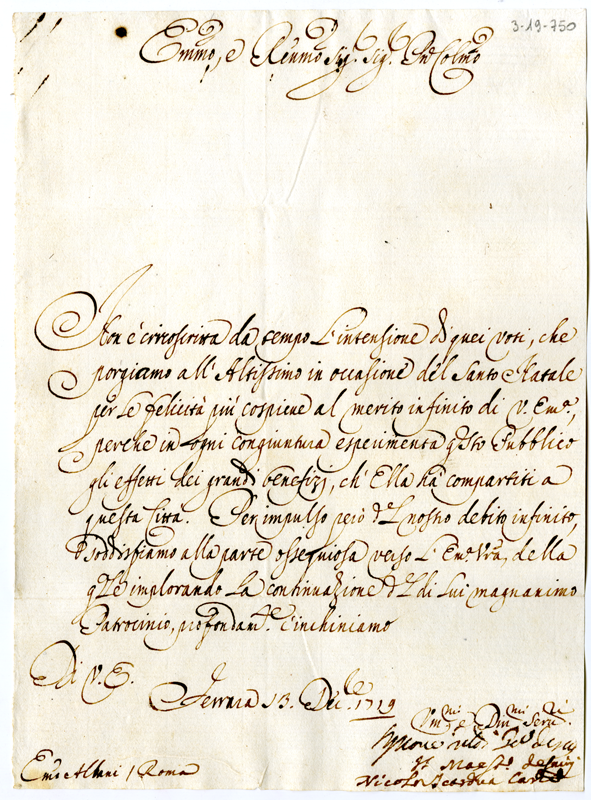 3-19-750
Emmo, e Reumo Sig.r Sig.r Pñ Colmo
Non è circoscritta da tempo L'intensione di quei voti, che
porgiamo all'Altissimo in occasione del Santo Natale
per Le felicità più cospicue al merito infinito di V. Em.a,
perche in ogni congiuntura esperimenta q.sto Pubblico
gli effetti dei grandi benefizj, ch'Ella hà compartiti a
questa Città. Per impulso però d.el nostro debito infinito,
soddisfiamo alla parte ossequiosa verso L'Em.a Vrã, della
q.le implorando La continuazione d.el di Lui magnanimo
Patrocinio, profondam.te c'inchiniamo
Di V. E.
Ferrara 13. Dec.bre 1719
Vm.mi e Dm.mi Serv.ri
Em.o Albani / Roma
Nicolò